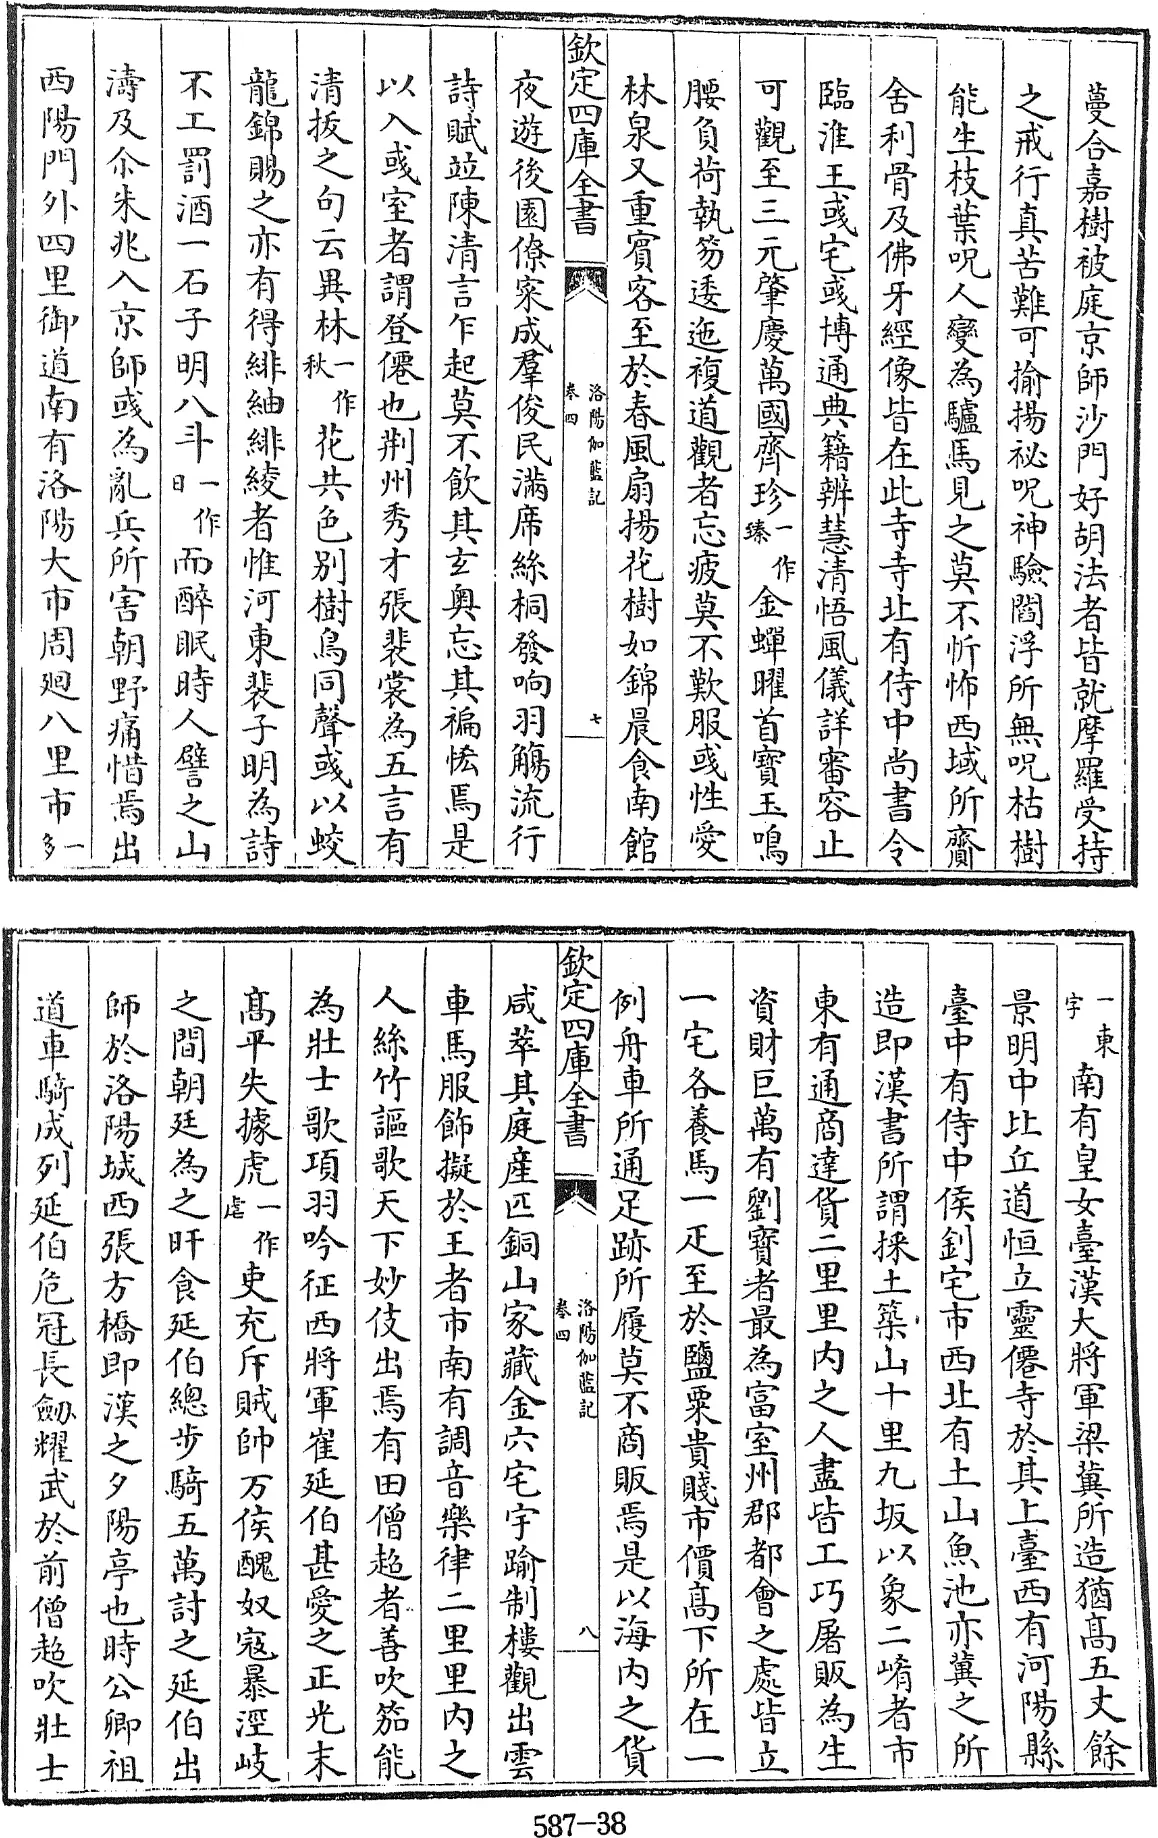 蔓合嘉樹被庭京師沙門好胡法者皆就摩羅受持
之戒行真苦難可揄揚祕呪神驗閻浮所無呪枯樹
能生枝葉呪人變為驢馬見之莫不忻怖西域所齎
舍利骨及佛牙經像皆在此寺寺北有侍中尚書令
臨淮王彧宅彧博通典籍辨慧清悟風儀詳審容止
可觀至三元肇慶萬國齊珍一作臻金蟬曜首寶玉鳴
腰負荷執笏逶迤複道觀者忘疲莫不歎服彧性愛
林泉又重賓客至於春風扇揚花樹如錦晨食南館
欽定四庫全書
洛陽伽藍記
卷四
七
夜遊後園僚寀成羣俊民滿席絲桐發响羽觴流行
詩賦竝陳清言乍起莫不飲其玄奥忘其褊恡焉是
以入彧室者謂登僊也荆州秀才張裴裳為五言有
清拔之句云異林一作秋花共色别樹鳥同聲彧以蛟
龍錦賜之亦有得緋紬緋綾者惟河東裴子明為詩
不工罰酒一石子明八斗一作日而醉眠時人譬之山
濤及尒朱兆入京師彧為亂兵所害朝野痛惜焉出
西陽門外四里御道南有洛陽大市周廻八里市一多
一東字南有皇女臺漢大將軍梁冀所造猶高五丈餘
景明中比丘道恒立靈僊寺於其上臺西有河陽縣
臺中有侍中侯釗宅市西北有土山魚池亦冀之所
造即漢書所謂採土築山十里九坂以象二崤者市
東有通商達貨二里里内之人盡皆工巧屠販為生
資財巨萬有劉寶者最為富室州郡都會之處皆立
一宅各養馬一疋至於鹽粟貴賤市價高下所在一
例舟車所通足跡所履莫不商販焉是以海内之貨
欽定四庫全書
洛陽伽藍記
卷四
八
咸萃其庭産匹銅山家藏金穴宅宇踰制樓觀出雲
車馬服飾擬於王者市南有調音樂律二里里内之
人絲竹謳歌天下妙伎出焉有田僧超者善吹笳能
為壯士歌項羽吟征西將軍崔延伯甚愛之正光末
高平失據虎一作虐吏充斥賊帥万俟醜奴寇暴涇岐
之間朝廷為之旰食延伯總步騎五萬討之延伯出
師於洛陽城西張方橋即漢之夕陽亭也時公卿祖
道車騎成列延伯危冠長劒耀武於前僧超吹壯士
587-38